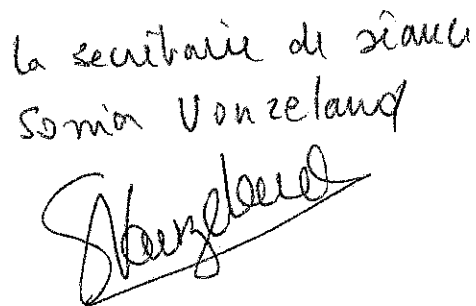 la secrétaire de séance
Sonia Vonzeland
SVonzeland